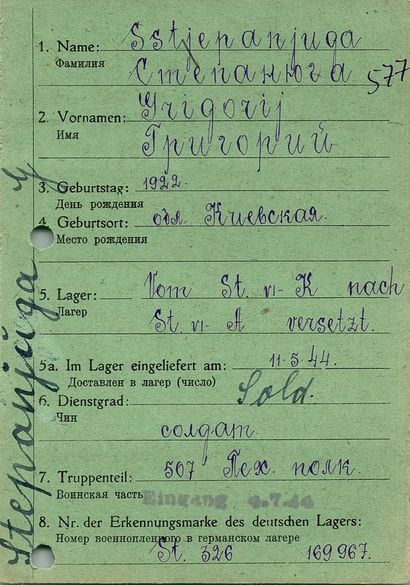 1. Name: Sstjepanjuga
Фамилия Степанюга 577
2. Vornamen: Grigorij
Имя Григорий
3. Geburtstag: 1922.
День рождения
4. Geburtsort: обл. Киевская.
Место рождения
5. Lager: Vom St. VI-K nach
Лагер St. VI-A versetzt.
5a. Im Lager eingeliefert am: 11.5.44.
Доставлен в лагер (число)
6. Dienstgrad: Sold.
Чин
солдат
7. Truppenteil: 507 Пех. полк.
Воинская часть Eingang
8. Nr. der Erkennungsmarke des deutschen Lagers:
Номер военнопленного в германском лагере
St. 326 169967.
Stepanjuga